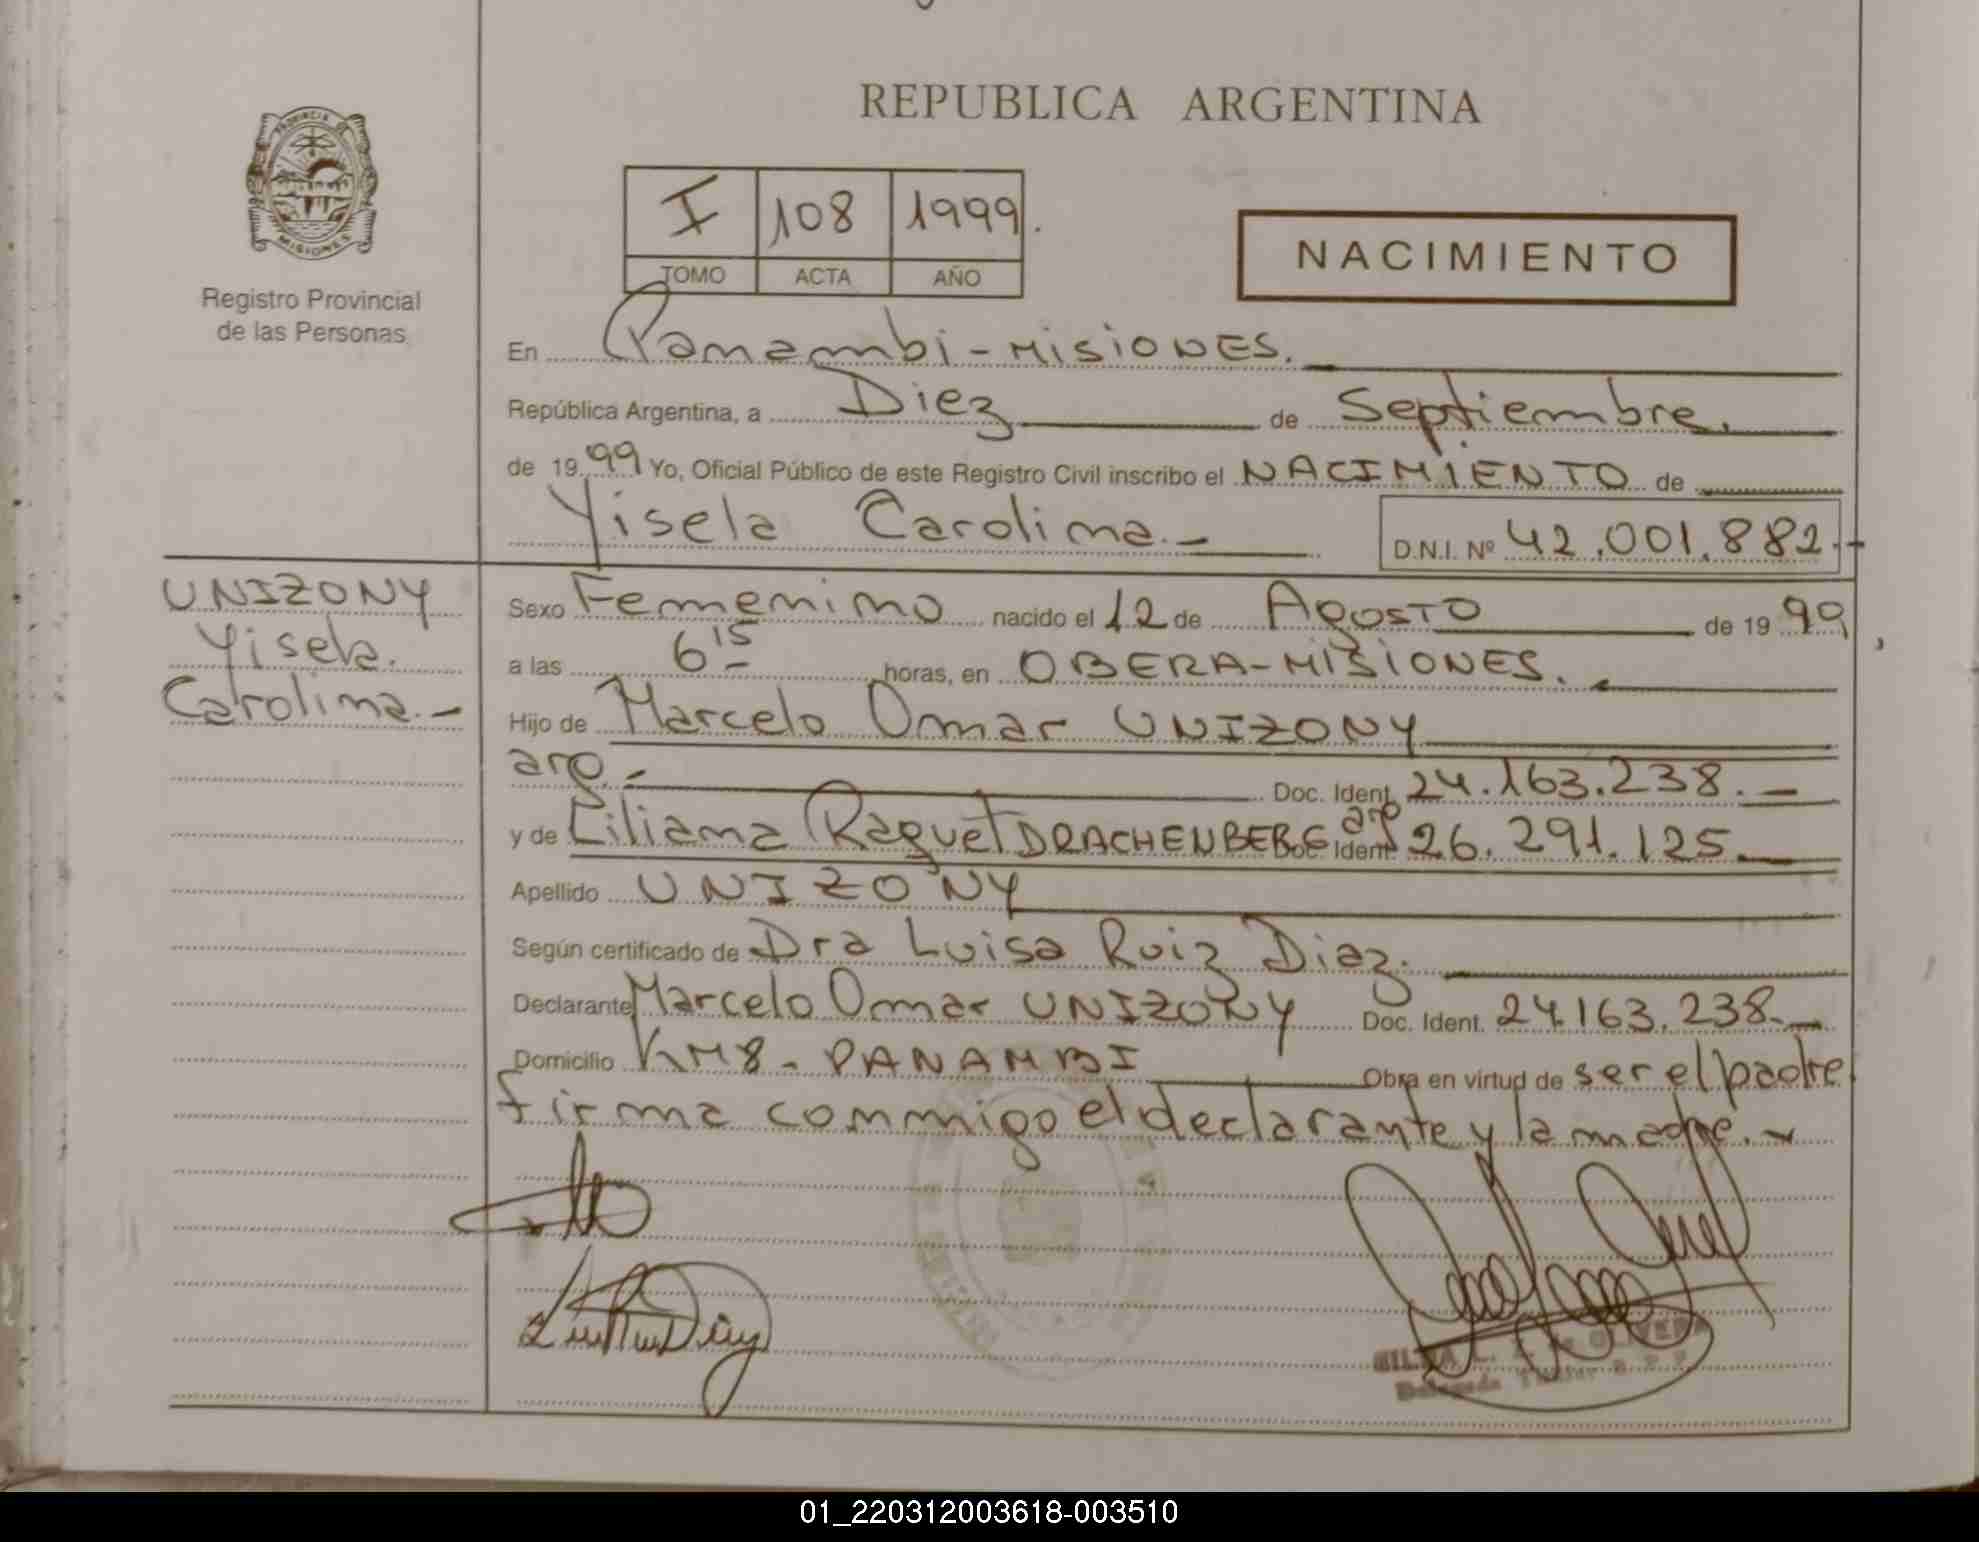 REPUBLICA ARGENTINA
PROVINCIA DE
MISIONES
Registro Provincial
de las Personas
I 108 1999.
TOMO ACTA AÑO
NACIMIENTO
En Panambi - MISIONES.
República Argentina, a Diez de Septiembre.
de 1999 Yo, Oficial Público de este Registro Civil inscribo el NACIMIENTO de
Yisela Carolina.- D.N.I. Nº 42.001.882.-
UNIZONY
Yisela.
Carolina.-
Sexo Femenino nacido el 12 de AgOSTO de 1999,
a las 6 15 horas, en OBERA-MISIONES.
Hijo de Marcelo Omar UNIZONY
arg.- Doc. Ident. 24.163.238.-
y de Liliana Raquel DRACHENBERG arg Doc. Ident. 26.291.125.
Apellido UNIZONY
Según certificado de Dra Luisa Ruiz Diaz.
Declarante Marcelo Omar UNIZONY Doc. Ident. 24.163.238.-
Domicilio KM8 - PANAMBI Obra en virtud de ser el padre
firma conmigo el declarante y la madre.
DE OLIVERA
Delegada Titular
01_220312003618-003510